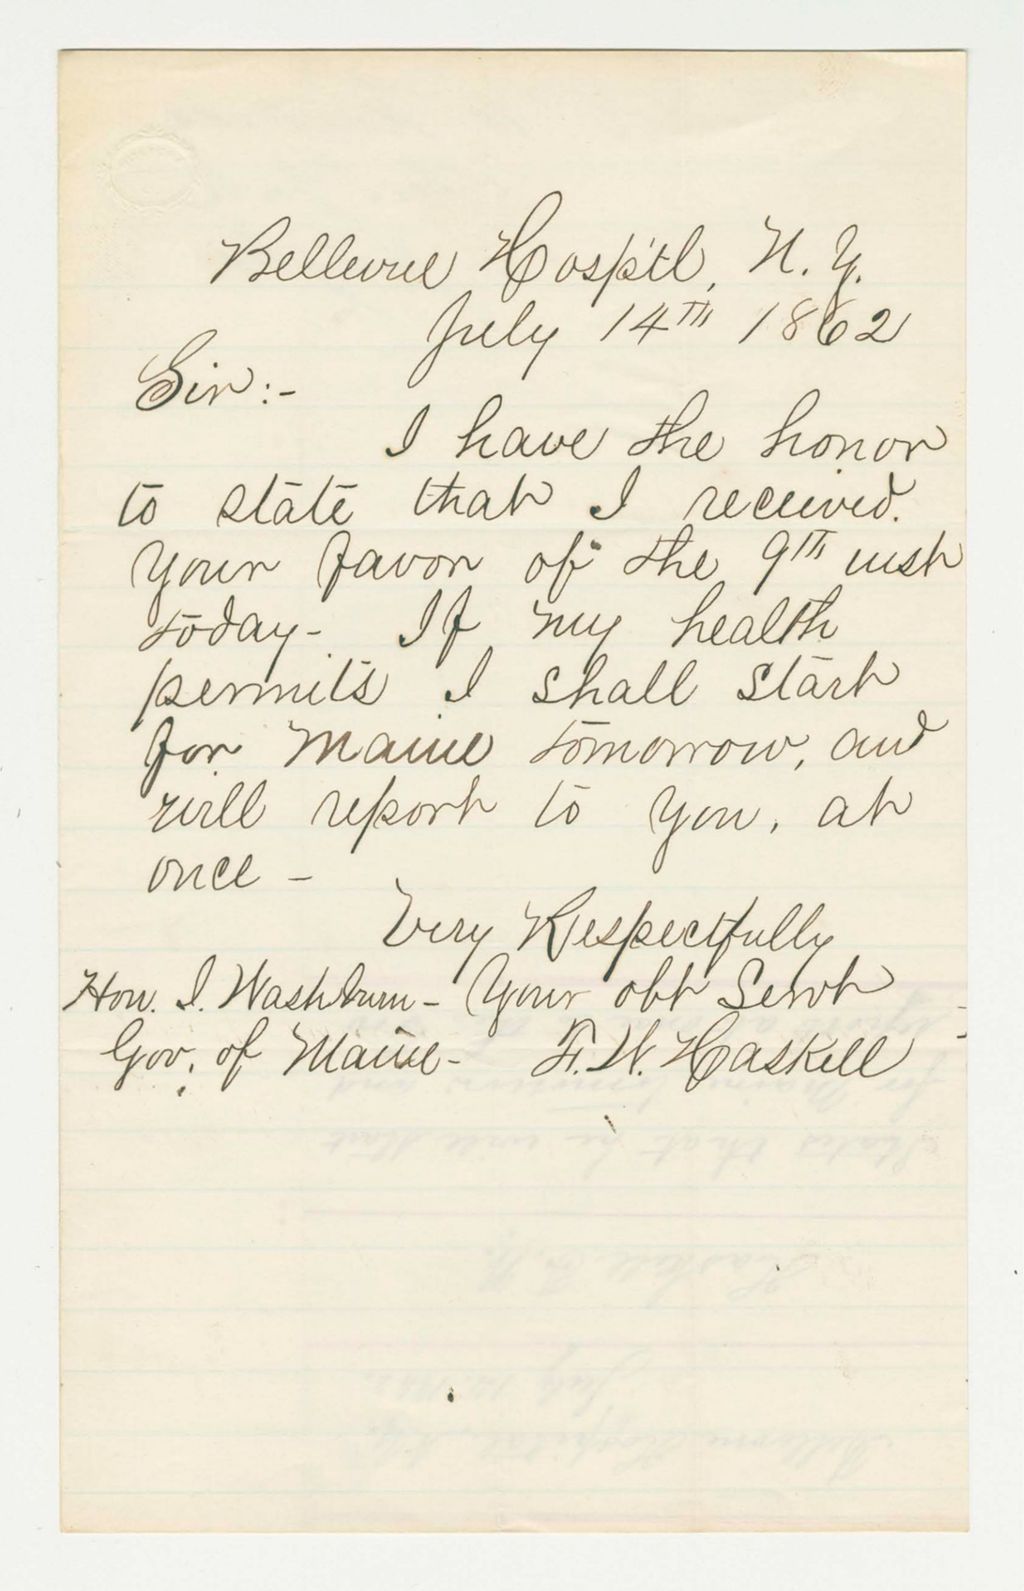 Bellevue Hosp'tl, N. Y.
July 14TH 1862
Sir:-
I have the honor
to state that I received
your favor of the 9TH inst
today- If my health
permits I shall start
for Maine tomorrow, and
will report to you, at
once -
Very Respectfully
Hon. I. Washburn - Your obt Servt
Gov. of Maine - F. W. Haskell